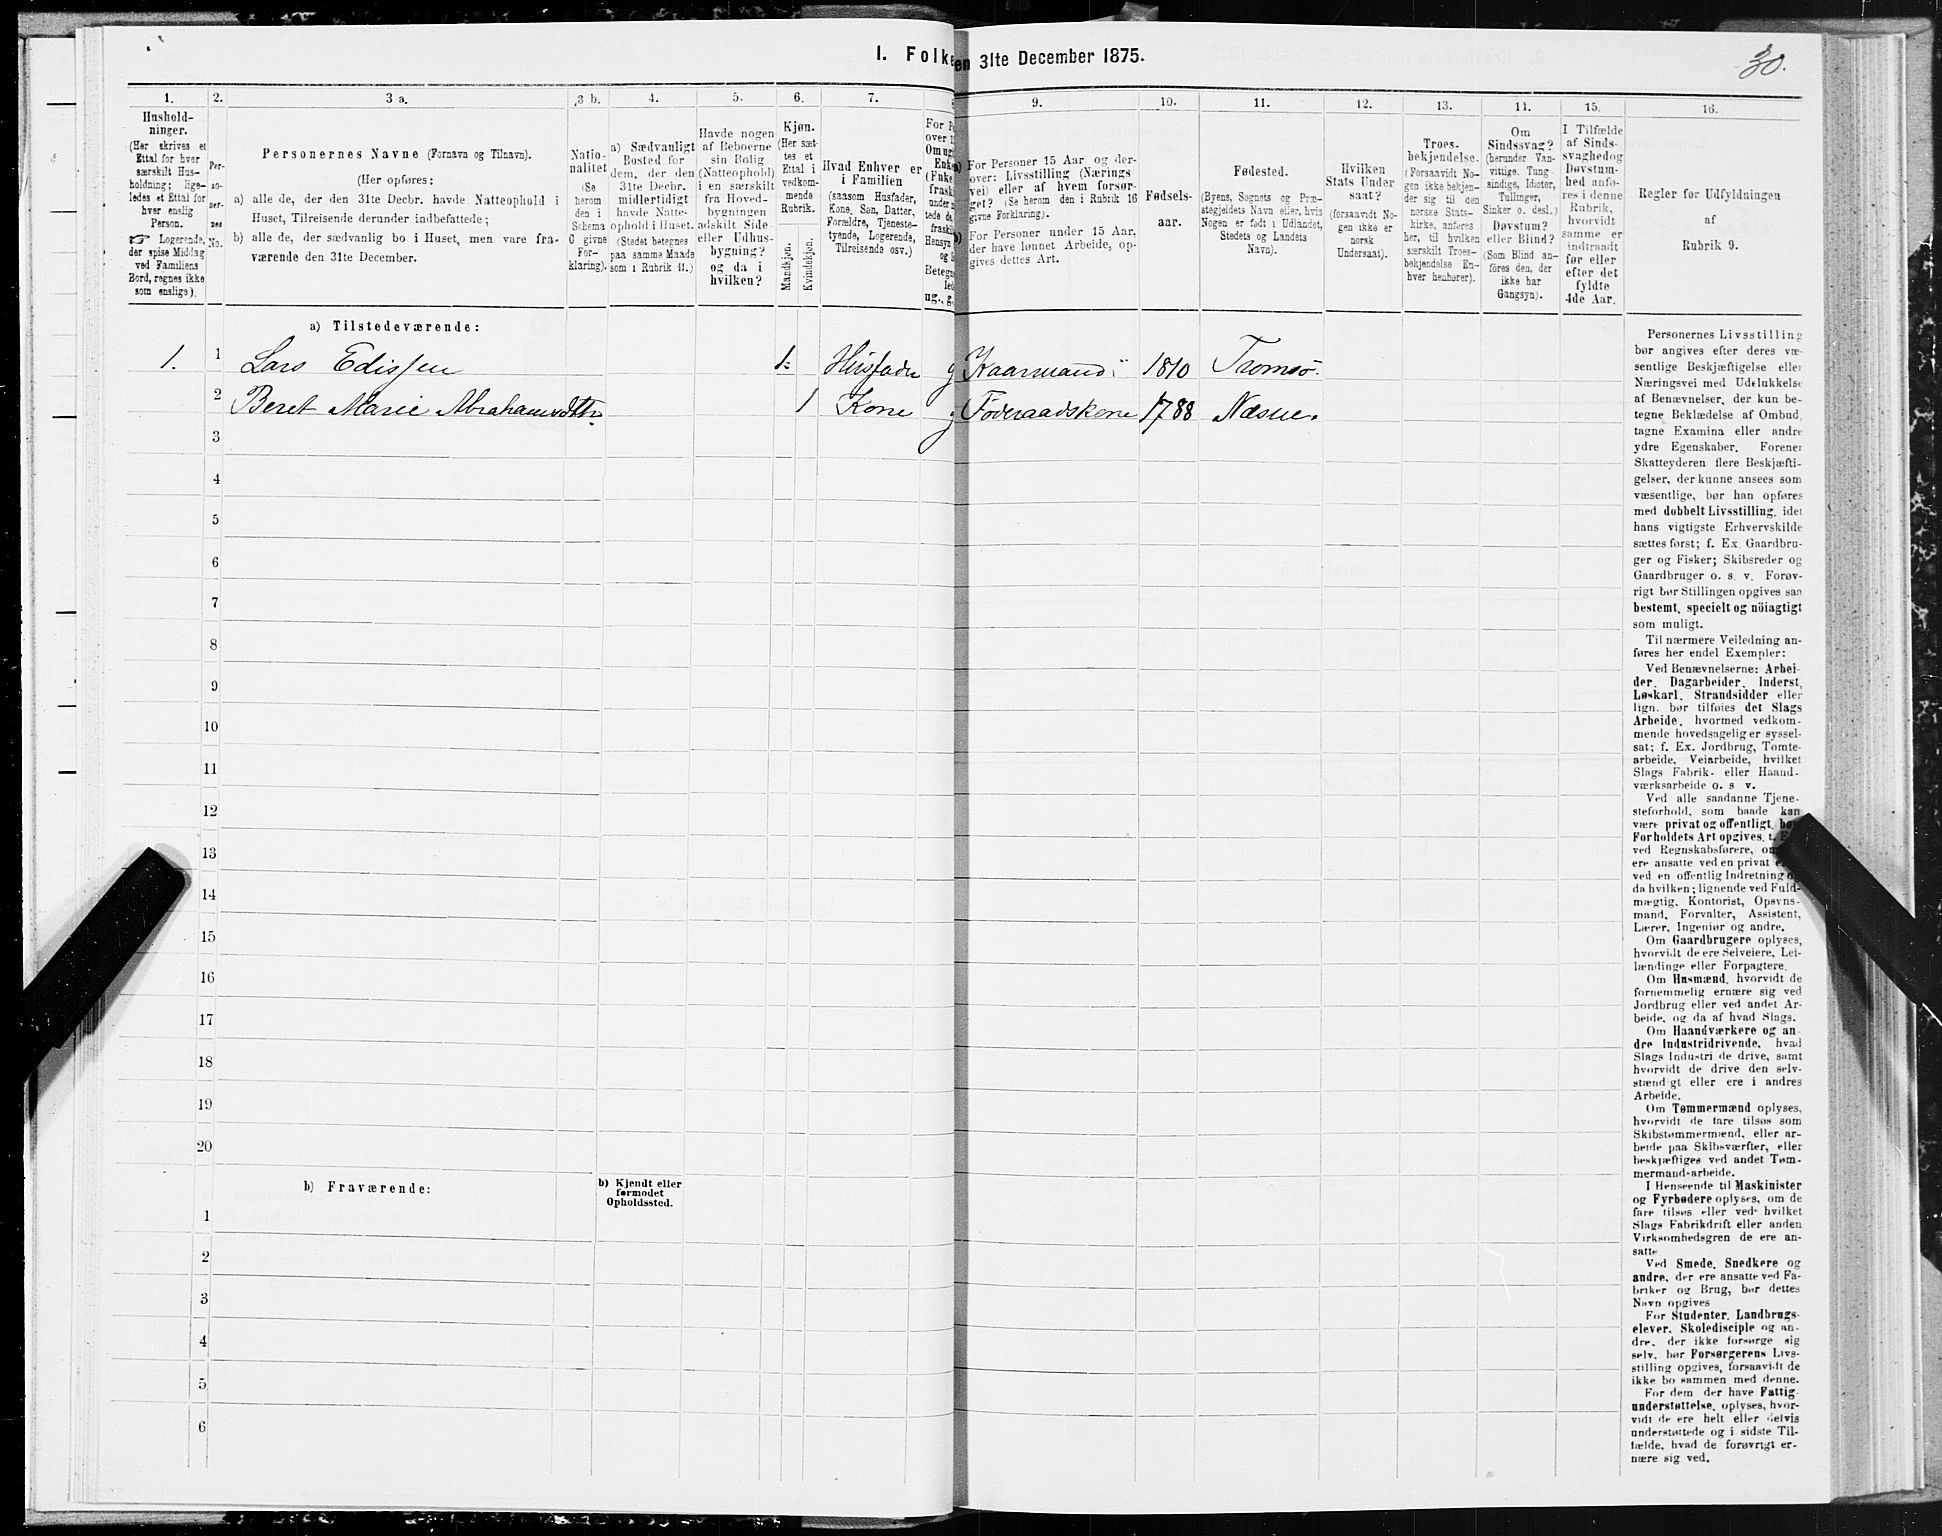 I. Folke en 31te December 1875.
30.
1.
2.
3 a.
3 b.
4.
5.
6.
7.
8
9.
10.
11.
12.
13.
14.
15.
16.
Hushold-
ninger.
(Her skrives et
Ettal for hver
særskilt Hus-
holdning; lige-
ledes et Ettal for
hver enslig
Person.
☞ Logerende,
der spise Middag
ved Familiens
Bord, regnes ikke
som enslige).
Per-
so-
ner-
nes
No.
Personernes Navne (Fornavn og Tilnavn).
(Her opføres:
a) alle de, der den 31te Decbr. havde Natteophold i
Huset, Tilreisende derunder indbefattede;
b) alle de, der sædvanlig bo i Huset, men vare fra-
værende den 31te December.
Natio-
nalitet
(Se
herom
den i
Schema
C givne
For-
klaring).
a) Sædvanligt
Bosted for
dem, der den
31te Decbr.
midlertidigt
havde Natte-
ophold i Huset.
(Stedet betegnes
paa samme Maade
som i Rubrik 11.)
Havde nogen
af Beboerne
sin Bolig
(Natteophold)
i en særskilt
fra Hoved-
bygningen
adskilt Side-
eller Udhus-
bygning?
og da i
hvilken?
Kjøn.
(Her sæt-
tes et
Ettal i
vedkom-
mende
Rubrik.
Mandkjøn.
Kvindekjøn.
Hvad Enhver er
i Familien
(saasom Husfader,
Kone, Søn, Datter,
Forældre, Tjeneste-
tyende, Logerende,
Tilreisende osv.)
For P
over 1
Om ug
Enke
(Fnke
fraski
under
tede de
fraskil
Hensyn
og b
Betegn
led
ug., g.,
a) For Personer 15 Aar og der-
over: Livsstilling (Nærings
vei) eller af hvem forsør-
get? (Se herom den i Rubrik 16
givne Forklaring).
b) For Personer under 15 Aar,
der have lønnet Arbeide, op-
gives dettes Art.
Fødsels-
aar.
Fødested.
(Byens, Sognets og Præ-
stegjeldets Navn eller, hvis
Nogen er født i Udlandet,
Stedets og Landets
Navn).
Hvilken
Stats Under
saat?
(forsaavidt No-
gen ikke er
norsk
Undersaat).
Troes-
bekjendelse.
(Forsaavidt No-
gen ikke bekjen-
der sig til den
norske Stats-
kirke, anføres
her, til hvilken
særskilt Troes-
bekjendelse En-
hver henhører).
Om
Sindssvag?
(herunder Van-
vittige, Tung
sindige, Idioter,
Tullinger,
Sinker o. desl.)
Døvstum?
eller Blind?
(Som Blind an-
føres den, der
ikke har
Gangsyn).
I Tilfælde
af Sinds-
svaghed og
Døvstum-
hed anfø-
res i denne
Rubrik,
hvorvidt
samme er
indtraadt
før eller
efter det
fyldte
4de Aar.
Regler for Udfyldningen
af
Rubrik 9.
a) Tilstedeværende:
1. 1 Lars Edissen 1. Husfader g Kaarmand 1810 Tromsø.
2 Beret Marie Abrahamsdttr 1 Kone g Føderaadskone 1788 Næsne.
3
4
5
6
7
8
9
10
11
12
13
14
15
16
17
18
19
20
b) Fraværende:
b) Kjendt eller
formodet
Opholdssted.
1
2
3
4
5
6
Personernes Livsstilling
bør angives efter deres væ-
sentlige Beskjæftigelse eller
Næringsvei med Udelukkelse
af Benævnelser, der kun be-
tegne Beklædelse af Ombud,
tagne Examina eller andre
ydre Egenskaber. Forener
Skatteyderen flere Beskjæfti-
gelser, der kunne ansees som
væsentlige, bør han opføres
med dobbelt Livsstilling, idet
hans vigtigste Erhvervskilde
sættes først; f. Ex. Gaardbru-
ger og Fisker; Skibsreder og
Gaardbruger o. s. v. Forøv-
rigt bør Stillingen opgives saa
bestemt, specielt og nöiagtigt
som muligt.
Til nærmere Veiledning an-
føres her endel Exempler:
Ved Benævnelserne: Arbei-
der, Dagarbeider, Inderst,
Løskarl, Strandsidder eller
lign. bør tilføies det Slags
Arbeide, hvormed vedkom-
mende hovedsagelig er syssel-
sat; f. Ex. Jordbrug, Tomte-
arbeide, Veiarbeide, hvilket
Slags Fabrik- eller Haand-
værksarbeide o. s v.
Ved alle saadanne Tjene-
steforhold, som baade kan
være privat og offentligt, bør
Forholdets Art opgives, t. E
ved Regnskabsførere, om
ere ansatte ved en privat e
ved en offentlig Indretning o
da hvilken; lignende ved Fuld-
mægtig, Kontorist, Opsyns-
mand, Forvalter, Assistent,
Lærer, Ingeniør og andre.
Om Gaardbrugere oplyses,
hvorvidt de ere Selveiere, Lei-
lændinge eller Forpagtere.
Om Husmænd, hvorvidt de
fornemmelig ernære sig ved
Jordbrug eller ved andet Ar-
beide, og da af hvad Slags.
Om Haandværkere og an-
dre Industridrivende, hvad
Slags Industri de drive, samt
hvorvidt de drive den selv-
stændigt eller ere i andres
Arbeide.
Om Tømmermænd oplyses,
hvorvidt de fare tilsøs som
Skibstømmermænd, eller ar-
beide paa Skibsværfter, eller
beskjæftiges ved andet Tøm-
mermand-arbeide.
I Henseende til Maskinister
og Fyrbødere oplyses, om de
fare tilsøs eller ved hvilket
Slags Fabrikdrift eller anden
Virksomhedsgren de ere an-
satte
Ved Smede, Snedkere og
andre, der ere ansatte ved Fa-
briker og Brug, bør dettes
Navn opgives
For Studenter, Landbrugs-
elever, Skoledisciple og an-
dre, der ikke forsørge sig
selv, bør Forsørgerens Livs-
stilling opgives, forsaavidt de
ikke bo sammen med denne.
For dem der have Fattig
understøttelse, oplyses, hvor-
vidt de ere helt eller delvis
understøttede og i sidste Til-
fælde, hvad de forøvrigt er-
nære sig ved.